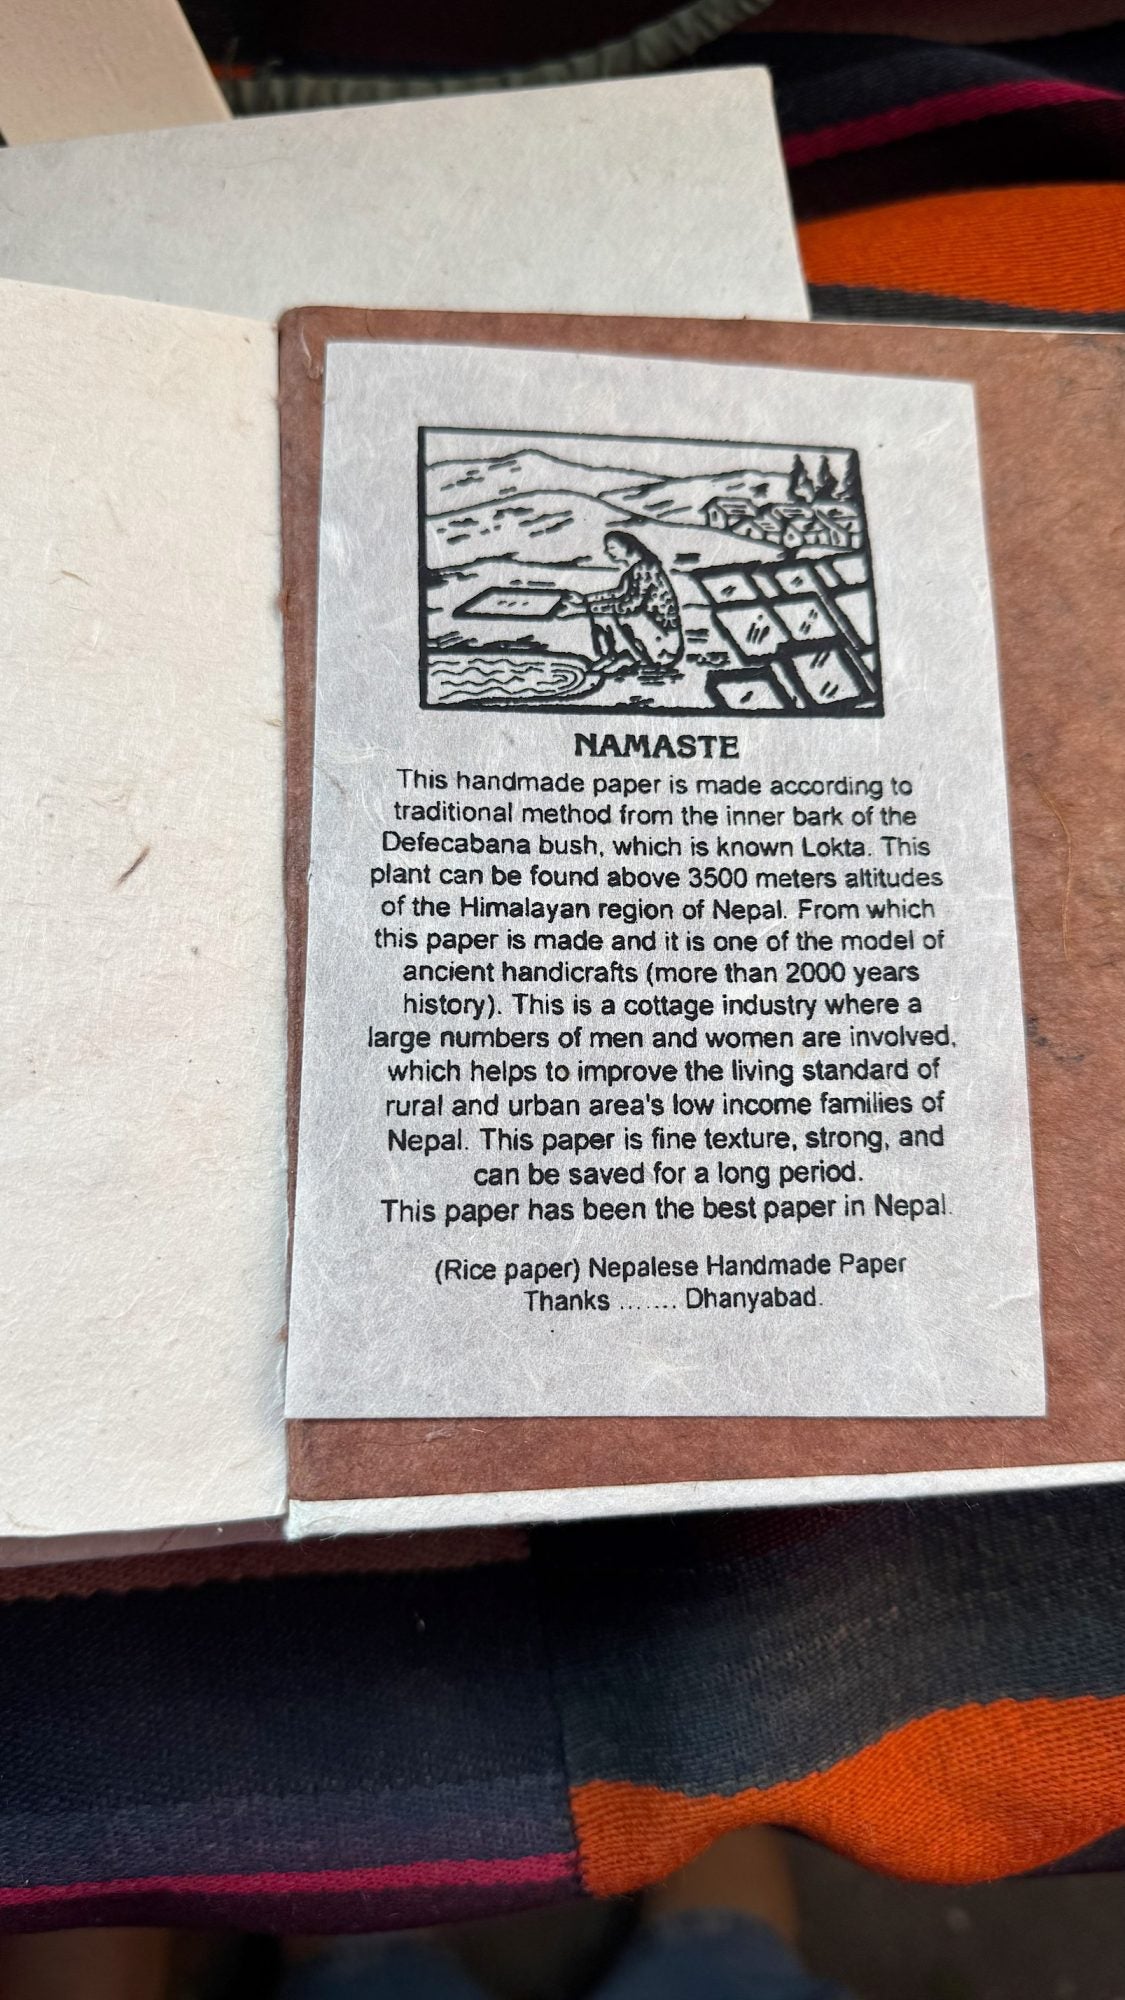 NAMASTE
This handmade paper is made according to
traditional method from the inner bark of the
Defecabana bush, which is known Lokta. This
plant can be found above 3500 meters altitudes
of the Himalayan region of Nepal. From which
this paper is made and it is one of the model of
ancient handicrafts (more than 2000 years
history). This is a cottage industry where a
large numbers of men and women are involved,
which helps to improve the living standard of
rural and urban area's low income families of
Nepal. This paper is fine texture, strong, and
can be saved for a long period.
This paper has been the best paper in Nepal.
(Rice paper) Nepalese Handmade Paper
Thanks ....... Dhanyabad.